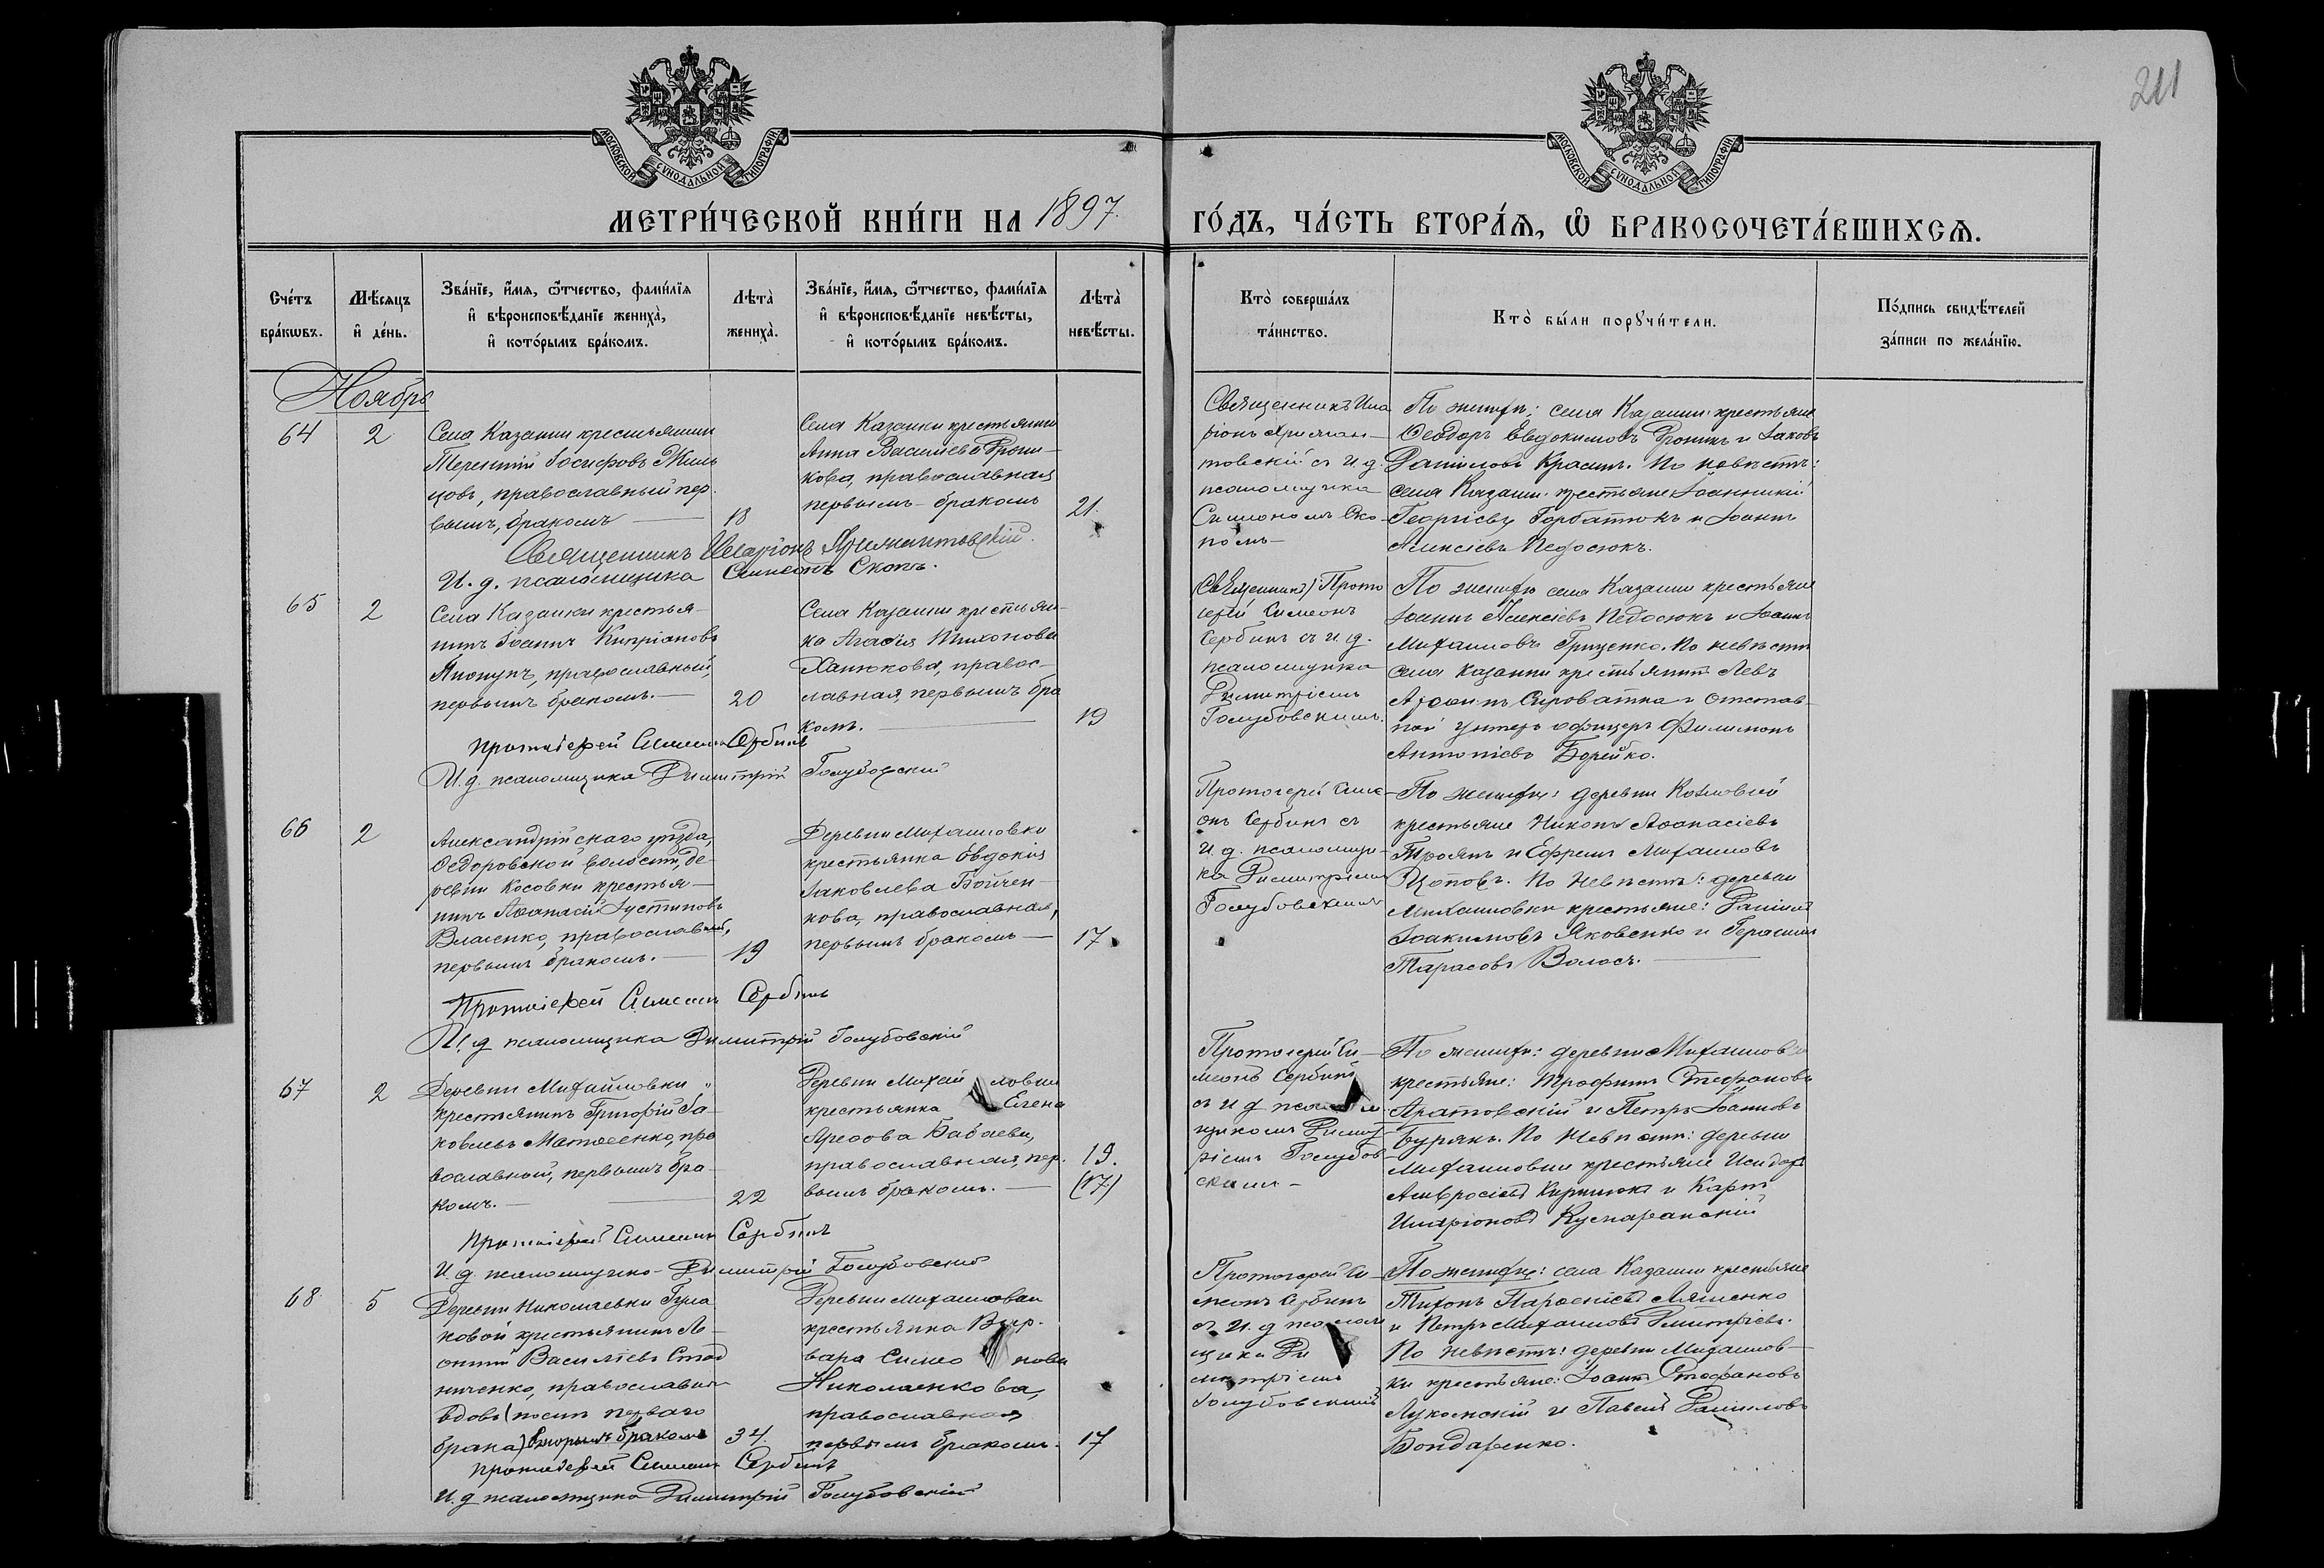 211
МОСКОВСКОЙ СѴНОДАЛЬНОЙ ТИПОГРАФІИ
МОСКОВСКОЙ СѴНОДАЛЬНОЙ ТИПОГРАФІИ
МЕТРИ́ЧЕСКОЙ КНИ́ГИ НА 1897.
ГО́ДЪ, ЧА́СТЬ ВТОРА́Ѧ, Ѽ БРАКОСОЧЕТА́ВШИХСѦ.
Сче́тъ бра́кѡвъ.
Мѣ́сѧцъ и҆ де́нь.
Зва́нїе, и҆́мѧ, ѻ҆́тчество, фами́лїѧ и҆ вѣроисповѣ́данїе жениха̀, и҆ кото́рымъ бра́комъ.
Лѣта̀ жениха̀.
Зва́нїе, и҆́мѧ, ѻ҆́тчество, фами́лїѧ и҆ вѣроисповѣ́данїе невѣ́сты, и҆ кото́рымъ бра́комъ.
Лѣта̀ невѣ́сты.
Кто̀ соверша́лъ та́инство.
Кто̀ бы́ли порꙋчи́тели.
По́дпись свидѣ́телей за́писи по жела́нїю.
Ноябрь
64
2
Села Казанки крестьянинъ
Терентій Іосифовъ
цовъ, православный, пер
вымъ бракомъ
18
Села Казанки крестьянка
Анна Васильева
кова, православная
первымъ бракомъ
21.
Священникъ Ила
ріонъ
товскій съ и. д.
псаломщика
Симеономъ Ско
помъ
По женихѣ: села Казанки крестьяне
Ѳеодоръ Евдокимовъ и Іаковъ
Даніиловъ По невѣстѣ:
села Казанки крестьяне Іоанникій
Георгіевъ Горбатюкъ и Іоаннъ
Алексіевъ Недосюкъ.
Священникъ Иларіонъ
И. д. псаломщика Симеонъ Скопъ.
65
2
Села Казанки крестья-
нинъ Іоаннъ Кипріановъ
православный,
первымъ бракомъ.
20
Села Казанки крестьян-
ка Агаѳія Тихонова
Ханюкова, правос-
лавная, первымъ бра
комъ.
19
(Священникъ) Прото
іерей Симеонъ
Сербинъ съ и. д.
псаломщика
Димитріемъ
Голубовскимъ.
По женихѣ села Казанки крестьяне
Іоаннъ Алексіевъ Недосюкъ и Іоаннъ
Михаиловъ Гриценко. По невѣстѣ
села Казанки крестьянинъ Левъ
Сироватка и отстав-
ной унтеръ офицеръ Филимонъ
Антоніевъ Борейко.
Протоіерей Симеонъ Сербинъ
И. д. псаломщика Димитрій Голубовскій
66
2
Александрійскаго уѣзда,
Ѳедоровской волости, де-
ревни Косовки крестья-
нинъ Аѳанасій Іустиновъ
Власенко, православный,
первымъ бракомъ.
19
Деревни Михаиловки
крестьянка Евдокія
Іаковлева Бойчен-
кова, православная,
первымъ бракомъ
17.
Протоіерей Симе-
онъ Сербинъ съ
и. д. псаломщи-
ка Димитріемъ
Голубовскимъ
По женихѣ: деревни
крестьяне Никонъ Аѳанасіевъ
Троянъ и Ефремъ Михаиловъ
По невѣстѣ: деревни
Михаиловки крестьяне: Даніилъ
Іоакимовъ Яковенко и Герасимъ
Тарасовъ Волосъ.
Протоіерей Симеонъ Сербинъ
И. д. псаломщика Димитрій Голубовскій
67
2
Деревни Михаиловки
крестьянинъ Григорій Іа-
ковлевъ Матвеенко, пра
вославный, первымъ бра-
комъ.
22
Деревни Михайловки
крестьянка Елена
Бабаева,
православная, пер-
вымъ бракомъ.
19.
(17)
Протоіерей Си-
меонъ Сербинъ
съ и. д. псалом
щикомъ Димит
ріемъ Голубов
скимъ
По женихѣ: деревни Михаиловки
крестьяне: Трофимъ Стефановъ
и Петръ Іоанновъ
Бурякъ. По невѣстѣ: деревни
Михаиловки крестьяне Исидоръ
Амвросіевъ и Карпъ
Иларіоновъ
Протоіерей Симеонъ Сербинъ
И. д. псаломщика Димитрій Голубовскій
68
5
Деревни Николаевки Гула
ковой крестьянинъ Ле-
онтій Васильевъ Стад
ниченко, православный
вдовъ (послѣ перваго
брака) вторымъ бракомъ
34.
Деревни Михаиловки
крестьянка Вар-
вара Симеонова
Николаенкова,
православная
первымъ бракомъ.
17
Протоіерей Си-
меонъ Сербинъ
съ и. д. псалом
щика Ди
митріемъ
Голубовскимъ
По женихѣ: села Казанки крестьяне
Тихонъ Парѳеніевъ Ляшенко
и Петръ Михаиловъ Дмитріевъ.
По невѣстѣ: деревни Михаилов-
ки крестьяне: Іоаннъ Стефановъ
и Павелъ Даніиловъ
Бондаренко.
Протоіерей Симеонъ Сербинъ
И. д. псаломщика Димитрій Голубовскій